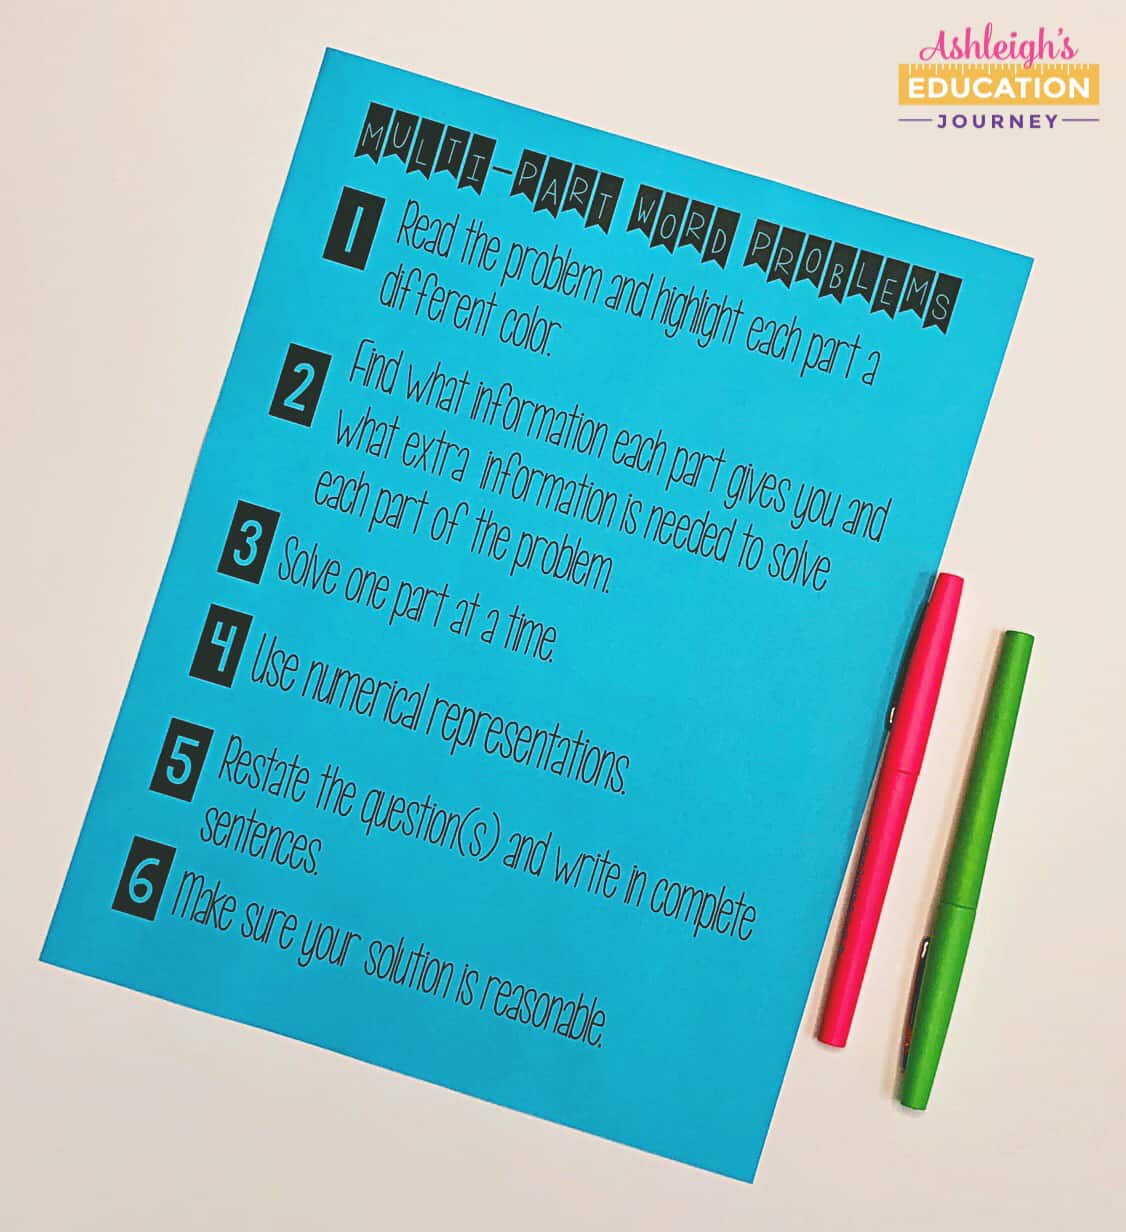 Ashleigh's
EDUCATION
JOURNEY
MULTI-PART WORD PROBLEMS
1 Read the problem and highlight each part a
different color.
2 Find what information each part gives you and
what extra information is needed to solve
each part of the problem.
3 Solve one part at a time.
4 Use numerical representations.
5 Restate the question(s) and write in complete
sentences.
6 Make sure your solution is reasonable.